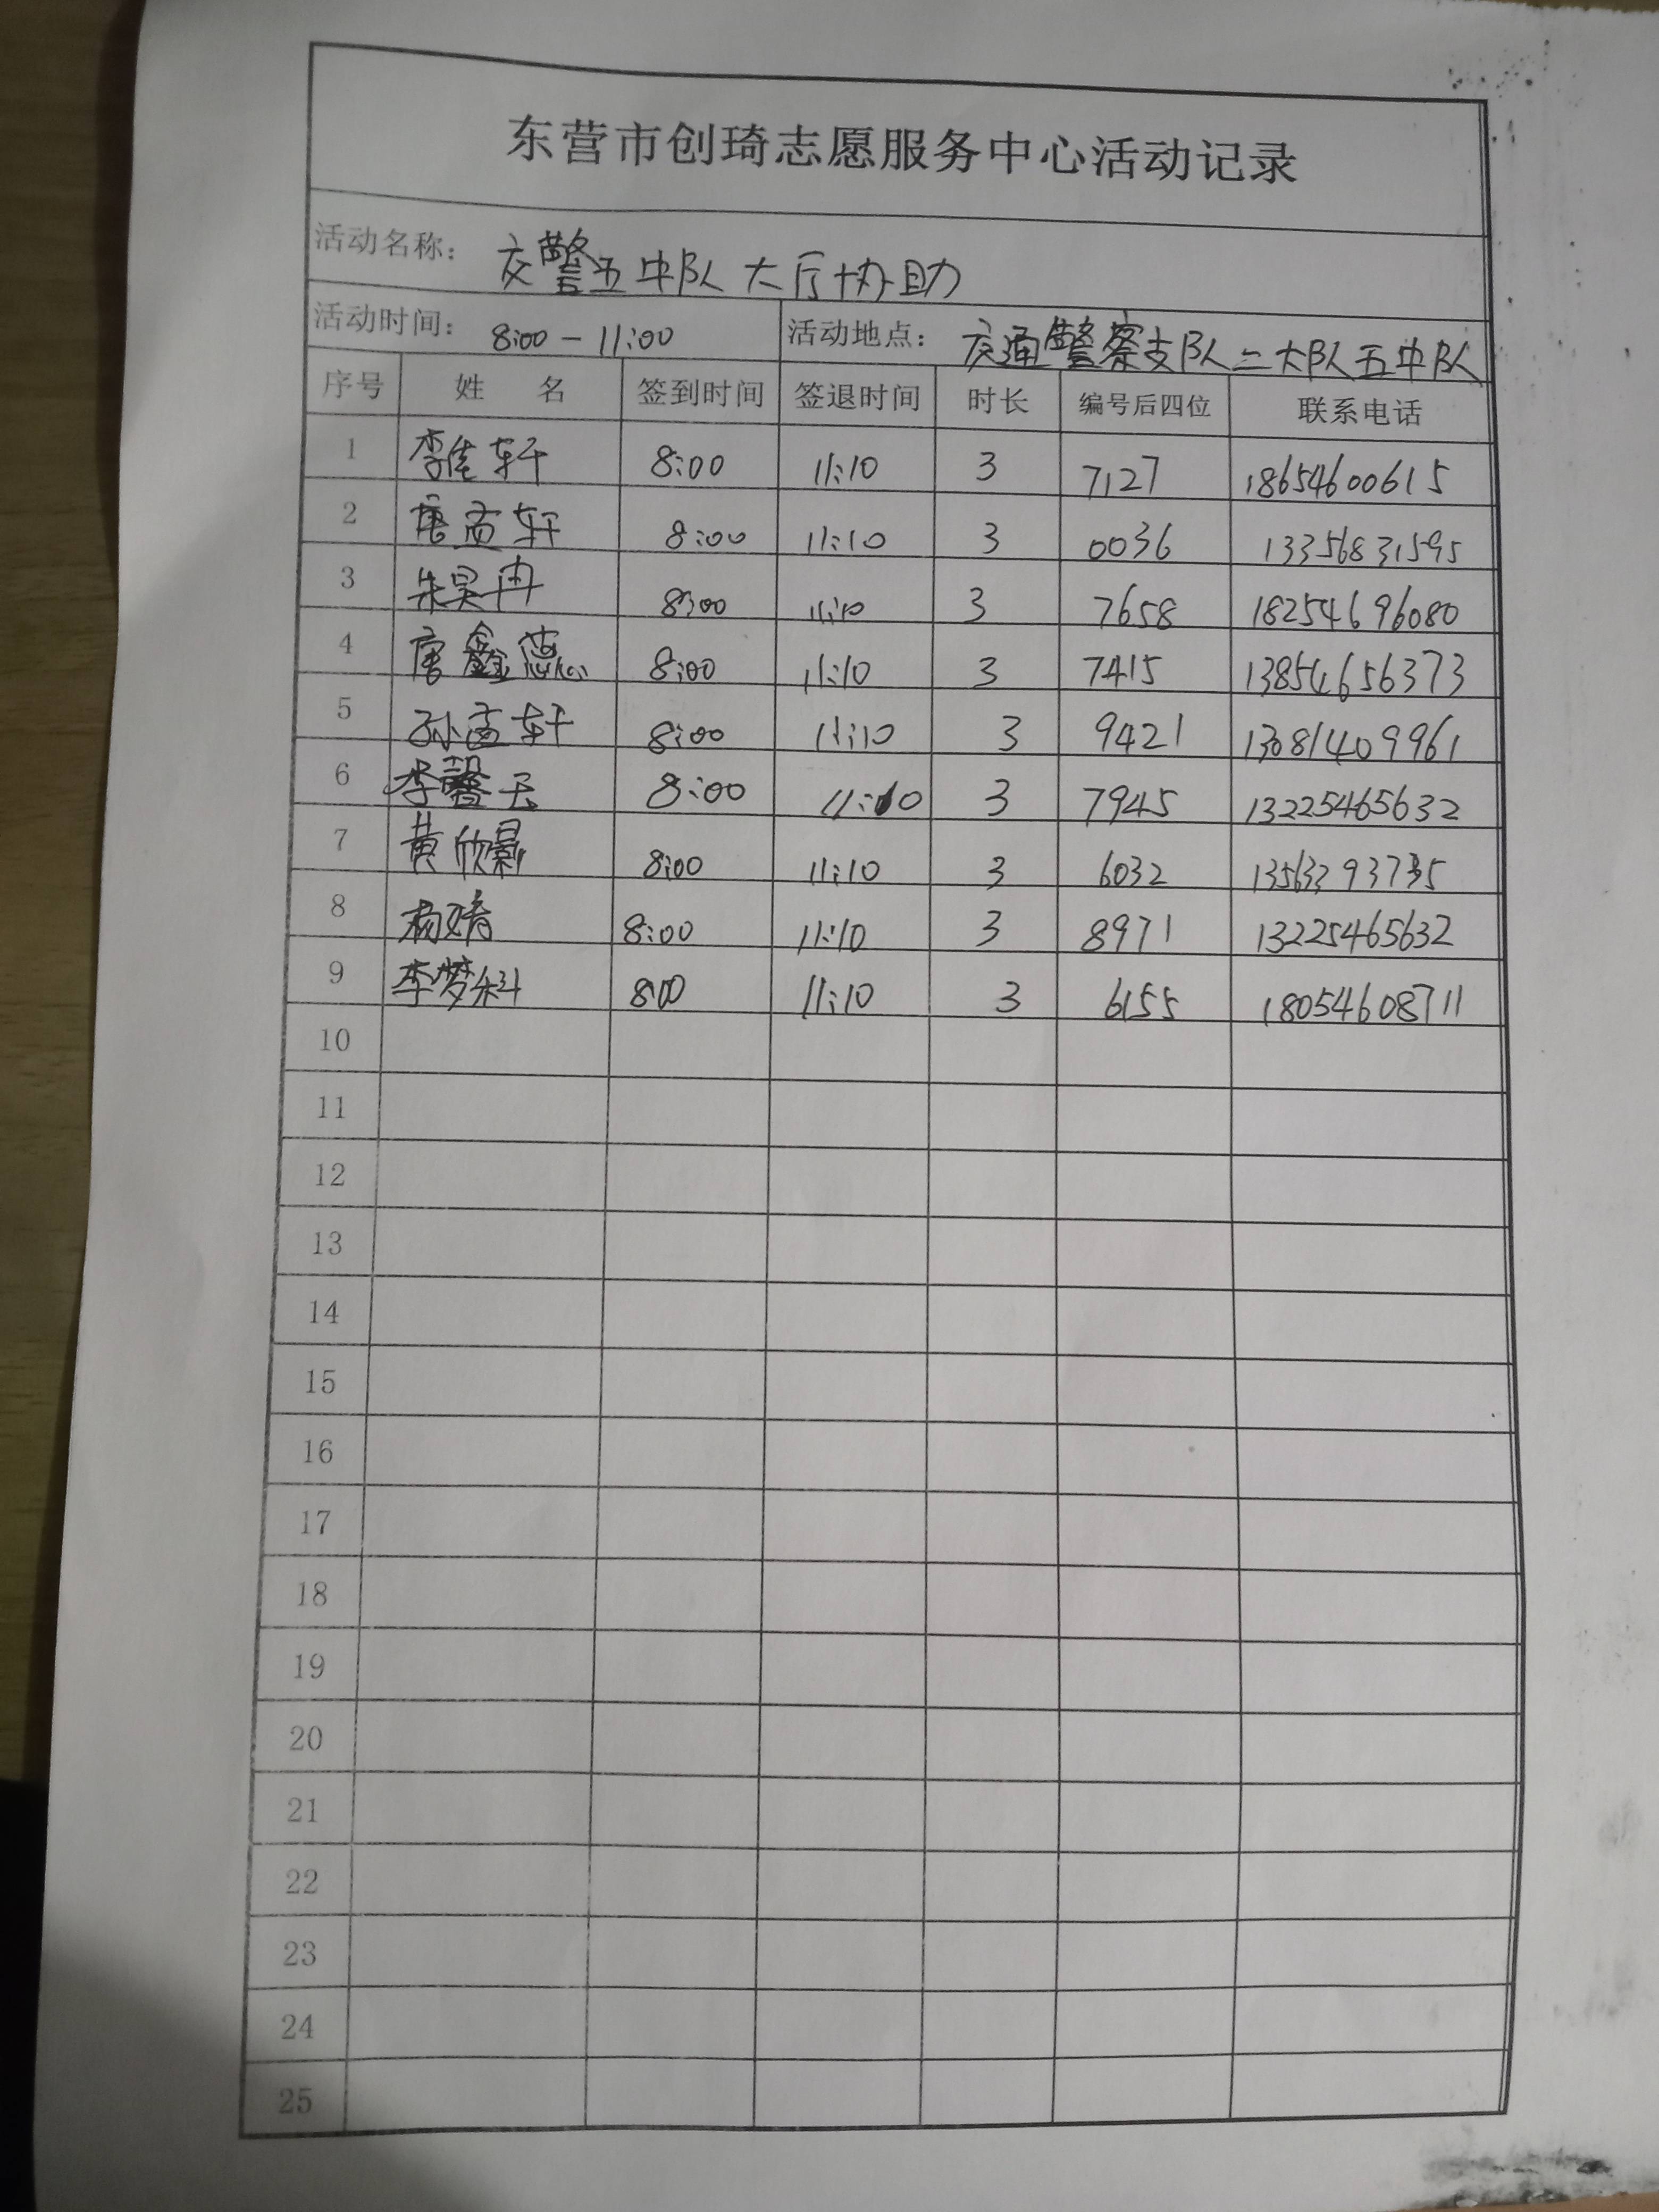 东营市创琦志愿服务中心活动记录
活动名称： 交警五中队大厅协助
活动时间： 8:00-11:00 活动地点： 交通警察支队二大队五中队
序号 姓 名 签到时间 签退时间 时长 编号后四位 联系电话
1 李佳轩 8:00 11:10 3 7127 18654600615
2 唐孟轩 8:00 11:10 3 0036 13356831595
3 朱昊冉 8:00 11:10 3 7658 18254696080
4 唐鑫德 8:00 11:10 3 7415 13854656373
5 孙孟轩 8:00 11:10 3 9421 13081409961
6 李馨天 8:00 11:10 3 7945 13225465632
7 黄欣 8:00 11:10 3 6032
8 杨婧 8:00 11:10 3 8971 13225465632
9 李梦 8:00 11:10 3 6155 18054608711
10
11
12
13
14
15
16
17
18
19
20
21
22
23
24
25